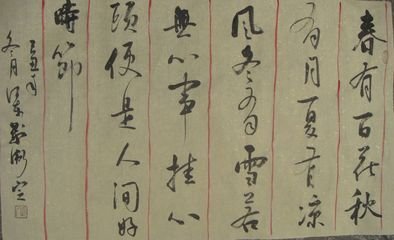 春有百花秋
有月夏有凉
风冬有雪若
無心事挂心
頭便是人间好
時節
冬月